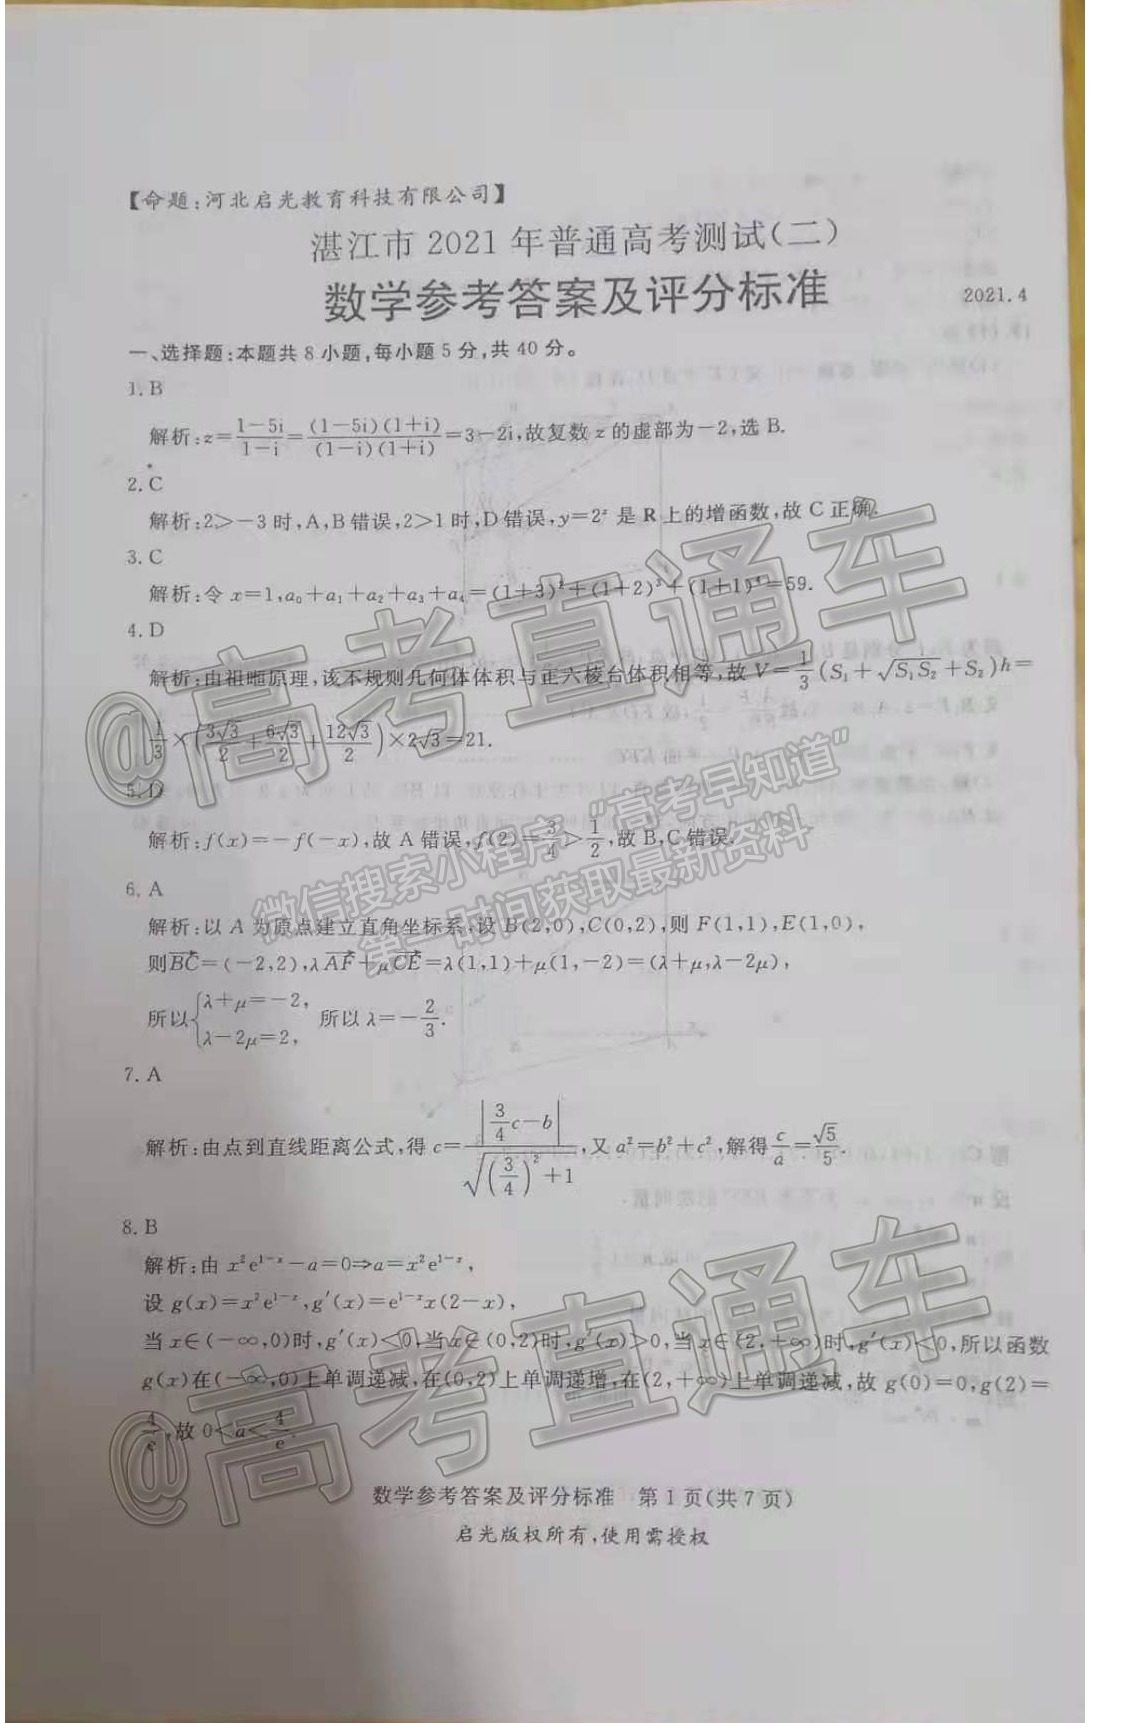 【命题:河北启光教育科技有限公司】
湛江市 2021 年普通高考测试(二)
数学参考答案及评分标准
2021.4
一、选择题:本题共 8 小题,每小题 5 分,共 40 分。
1. B
解析:z=\frac{1-5i}{1-i}=\frac{(1-5i)(1+i)}{(1-i)(1+i)}=3-2i,故复数 z 的虚部为-2,选 B.
2. C
解析:2>-3 时,A,B 错误,2>1 时,D 错误,y=2^x 是 R 上的增函数,故 C 正确.
3. C
解析:令 x=1,a_0+a_1+a_2+a_3+a_4=(1+3)^2+(1+2)^3+(1+1)^4=59.
4. D
解析:由祖暅原理,该不规则几何体体积与正六棱台体积相等,故 V=\frac{1}{3}(S_1+\sqrt{S_1S_2}+S_2)h=
\frac{1}{3}×(\frac{3\sqrt{3}}{2}+\frac{6\sqrt{3}}{2}+\frac{12\sqrt{3}}{2})×2\sqrt{3}=21.
5. D
解析:f(x)=-f(-x),故 A 错误,f(2)=\frac{3}{4}>\frac{1}{2},故 B,C 错误.
6. A
解析:以 A 为原点建立直角坐标系,设 B(2,0),C(0,2),则 F(1,1),E(1,0),
则\overrightarrow{BC}=(-2,2),λ\overrightarrow{AF}+μ\overrightarrow{CE}=λ(1,1)+μ(1,-2)=(λ+μ,λ-2μ),
所以{λ+μ=-2, λ-2μ=2, 所以 λ=-\frac{2}{3}.
7. A
解析:由点到直线距离公式,得 c=\frac{|\frac{3}{4}c-b|}{\sqrt{(\frac{3}{4})^2+1}},又 a^2=b^2+c^2,解得\frac{c}{a}=\frac{\sqrt{5}}{5}.
8. B
解析:由 x^2e^{1-x}-a=0⇒a=x^2e^{1-x},
设 g(x)=x^2e^{1-x},g'(x)=e^{1-x}x(2-x),
当 x∈(-∞,0)时,g'(x)<0,当 x∈(0,2)时,g'(x)>0,当 x∈(2,+∞)时,g'(x)<0,所以函数
g(x)在(-∞,0)上单调递减,在(0,2)上单调递增,在(2,+∞)上单调递减,故 g(0)=0,g(2)=
\frac{4}{e},故 0<a<\frac{4}{e}.
数学参考答案及评分标准 第 1 页(共 7 页)
启光版权所有,使用需授权
@高考直通车
微信搜索小程序“高考早知道”
第一时间获取最新资料
@高考直通车